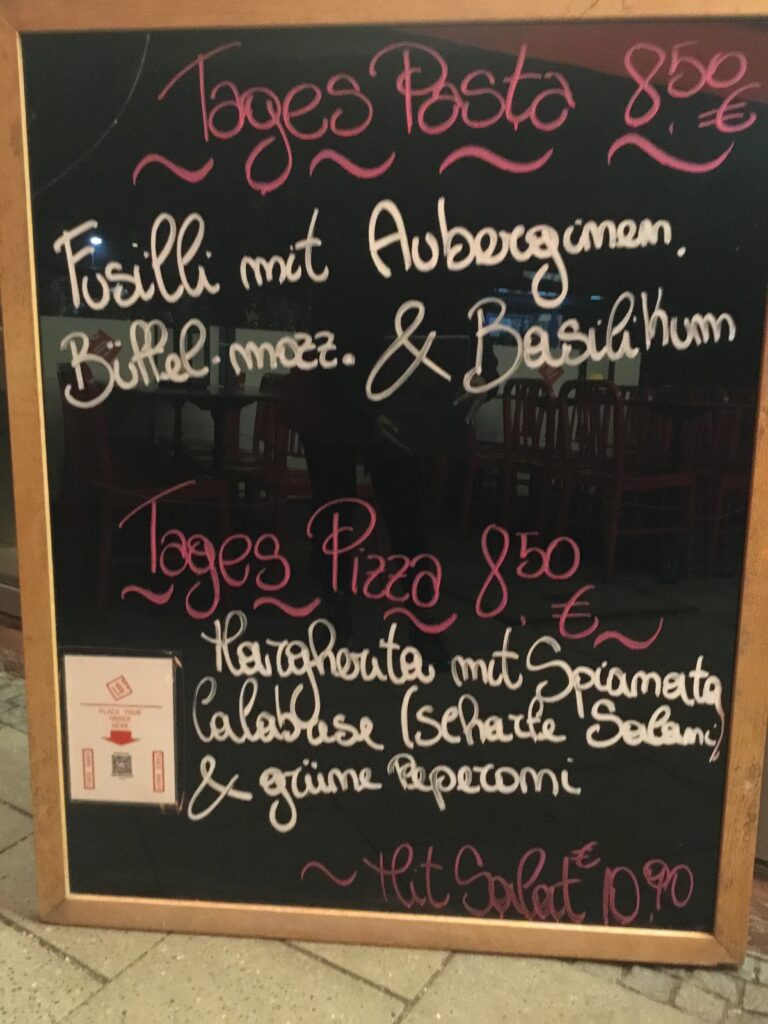 Tages Pasta 8.50 €
Fusilli mit Auberginen.
Büffel-mozz. & Basilikum
Tages Pizza 8.50 €
Margherita mit Spianata
Calabrese (scharfe Salami)
& grüne Peperoni
PLACE YOUR
ORDER
HERE
~ Mit Salat € 10.90